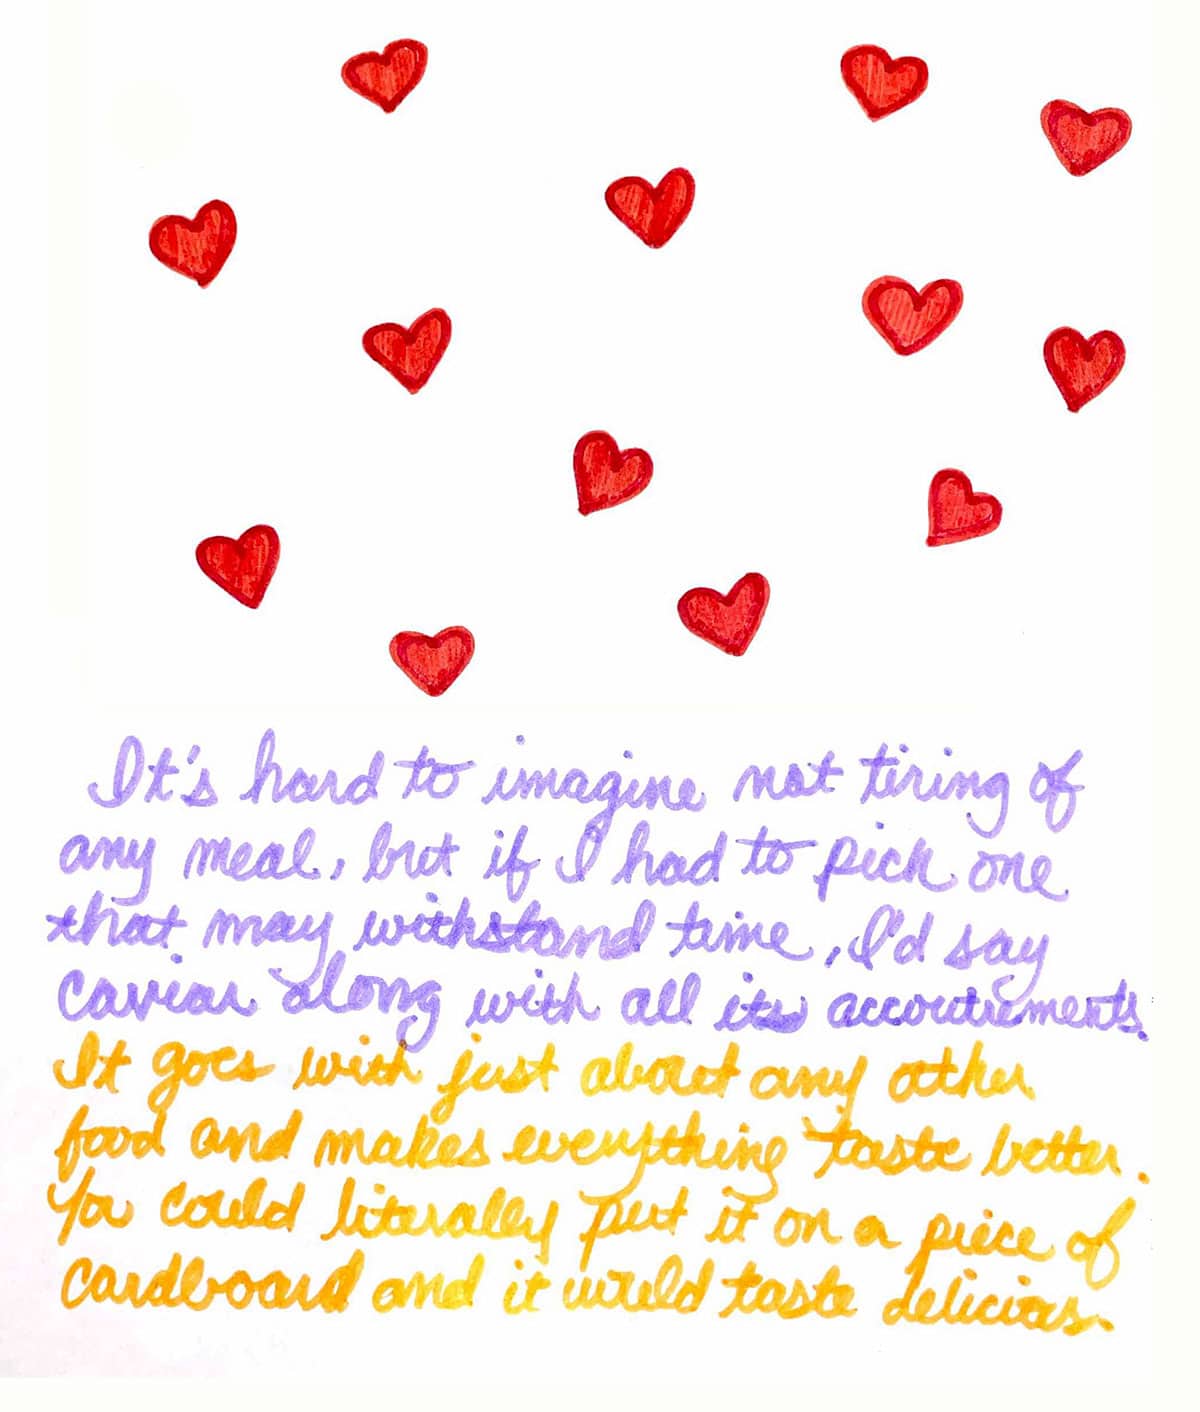 It's hard to imagine not tiring of
any meal, but if I had to pick one
that may withstand time, I'd say
caviar along with all its accoutrements.
It goes with just about any other
food and makes everything taste better.
You could literally put it on a piece of
cardboard and it would taste delicious.